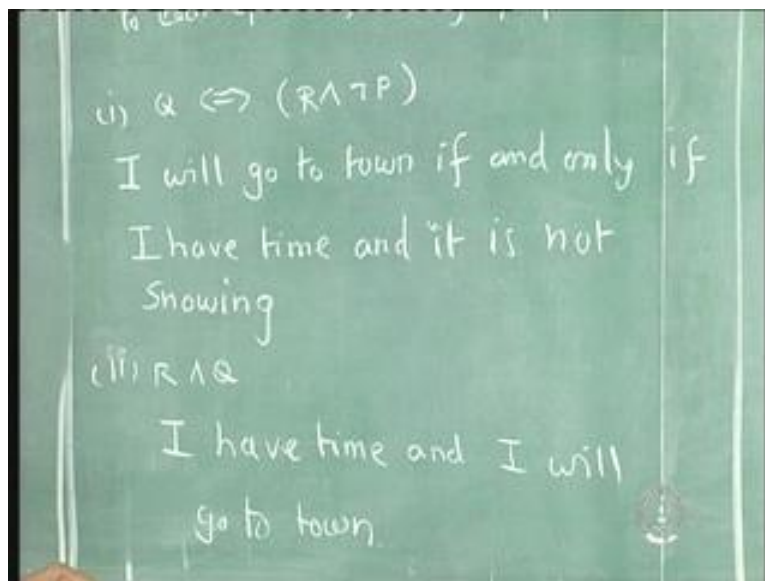 (i) Q ⇔ (R∧¬P)
I will go to town if and only if
I have time and it is not
Snowing
(ii) R∧Q
I have time and I will
go to town